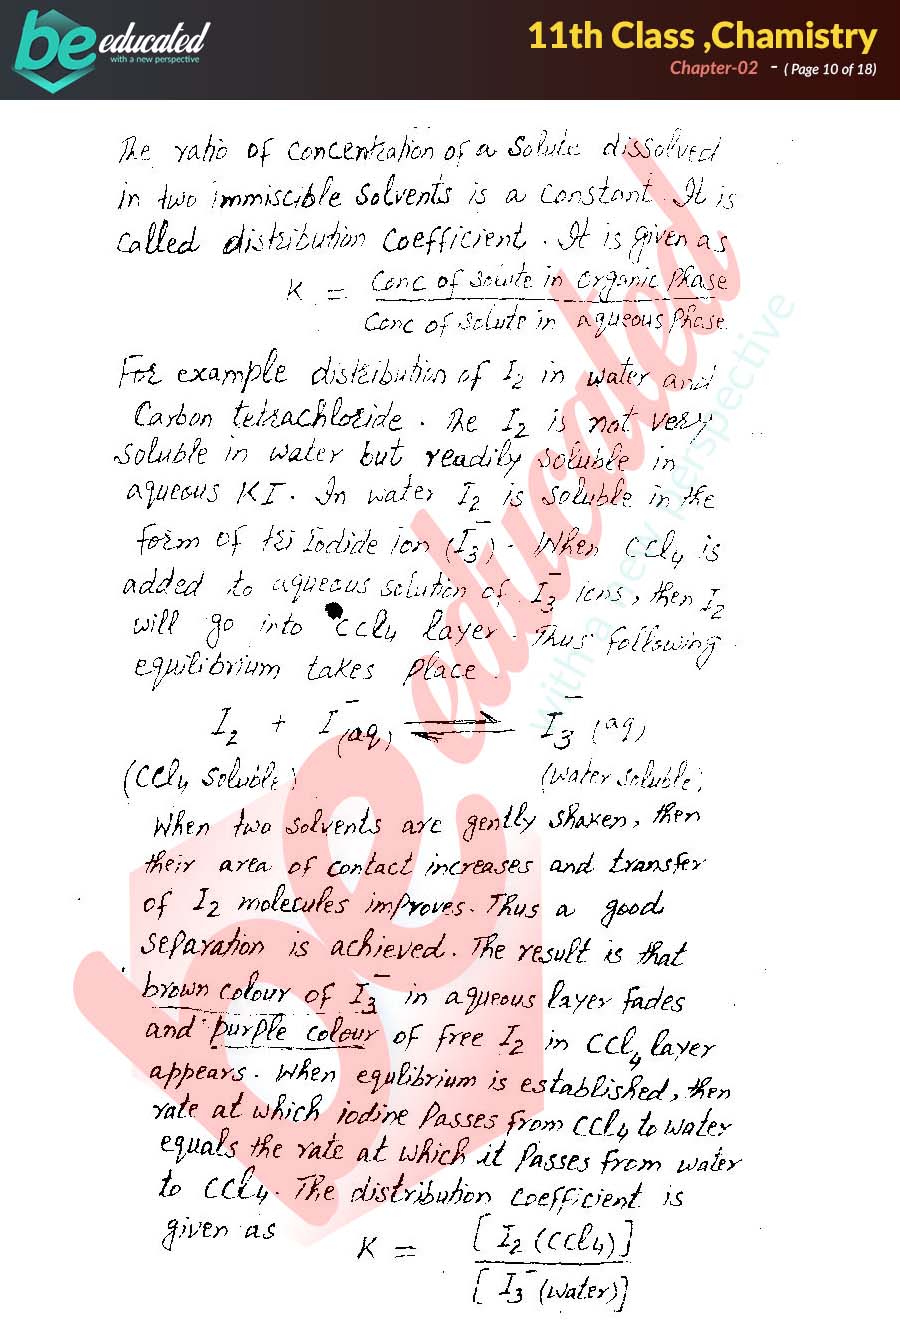 be educated
with a new perspective
11th Class ,Chamistry
Chapter-02 - ( Page 10 of 18)
The ratio of concentration of a solute dissolved
in two immiscible solvents is a constant. It is
called distribution coefficient. It is given as
K = Conc of solute in organic phase
Conc of solute in aqueous phase
For example distribution of I2 in water and
Carbon tetrachloride. The I2 is not very
soluble in water but readily soluble in
aqueous KI. In water I2 is soluble in the
form of tri iodide ion (I3⁻). When CCl4 is
added to aqueous solution of I3⁻ ions, then I2
will go into CCl4 layer. Thus following
equilibrium takes place.
I2 + I⁻(aq) ⇌ I3⁻ (aq)
(CCl4 soluble) (Water soluble)
When two solvents are gently shaken, then
their area of contact increases and transfer
of I2 molecules improves. Thus a good
separation is achieved. The result is that
brown colour of I3⁻ in aqueous layer fades
and purple colour of free I2 in CCl4 layer
appears. When equlibrium is established, then
rate at which iodine passes from CCl4 to water
equals the rate at which it passes from water
to CCl4. The distribution coefficient is
given as
K = [I2 (CCl4)]
[I3⁻ (water)]
be educated
with a new perspective